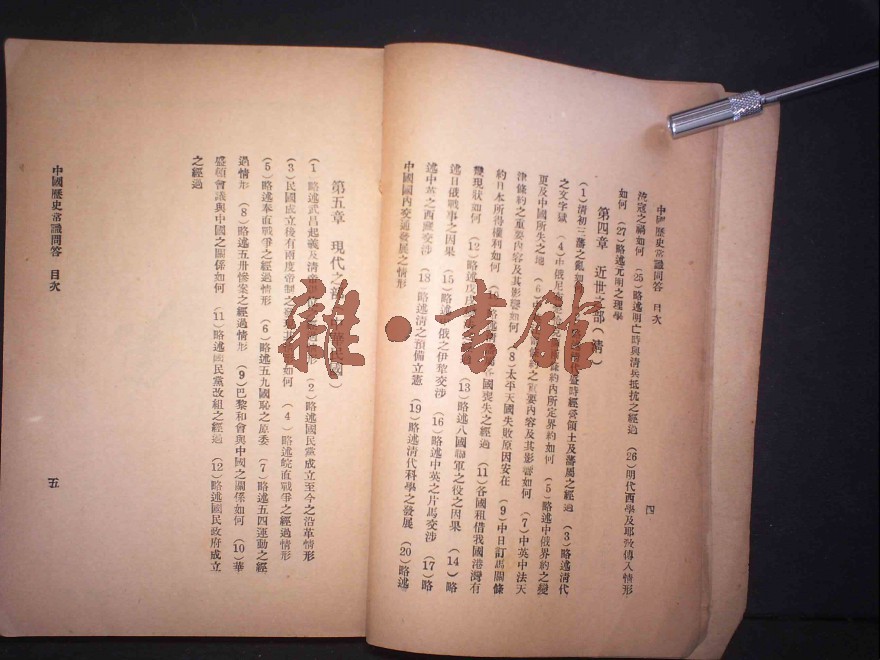 中國歷史常識問答 目次
四
流寇之禍如何 (25)略述明亡時與清兵抵抗之經過 (26)明代西學及耶教傳入情形
如何 (27)略述元明之理學
第四章 近世之部(清)
(1)清初三藩之亂如何 代盛時經營領土及藩屬之經過 (3)略述清代
之文字獄 (4)中俄尼 條約內所定界約如何 (5)略述中俄界約之變
更及中國所失之地 (6) 約之重要內容及其影響如何 (7)中英中法天
津條約之重要內容及其影響如何 (8)太平天國失敗原因安在 (9)中日訂馬關條
約日本所得權利如何 (10)略述清 各國喪失之經過 (11)各國租借我國港灣有
變現狀如何 (12)略述戊戌 (13)略述八國聯軍之役之因果 (14)略
述日俄戰事之因果 (15)略述 俄之伊犂交涉 (16)略述中英之片馬交涉 (17)略
述中英之西藏交涉 (18)略述清之預備立憲 (19)略述清代科學之發展 (20)略述
中國國內交通發展之情形
第五章 現代之部 民國)
(1)略述武昌起義及清帝 情形 (2)略述國民黨成立至今之沿革情形
(3)民國成立後有兩度帝制之 如何 (4)略述皖直戰爭之經過情形
(5)略述奉直戰爭之經過情形 (6)略述五九國恥之原委 (7)略述五四運動之經
過情形 (8)略述五卅慘案之經過情形 (9)巴黎和會與中國之關係如何 (10)華
盛頓會議與中國之關係如何 (11)略述國民黨改組之經過 (12)略述國民政府成立
之經過
中國歷史常識問答 目次
五
雜·書館